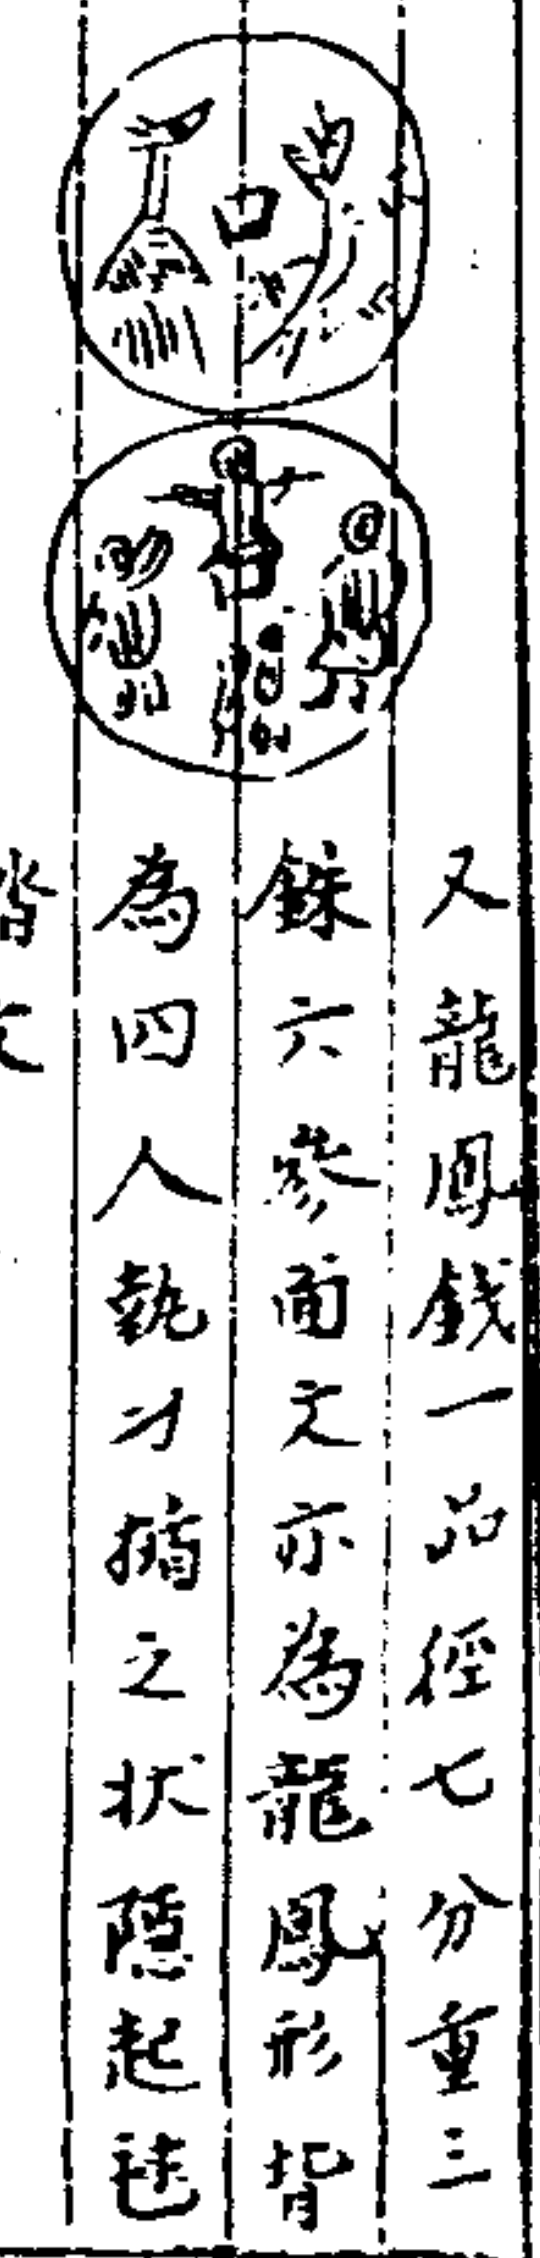 又龍鳳錢一品徑七分重三
銖六參面文亦為龍鳳形背
為四人執才擶之狀隱起毬